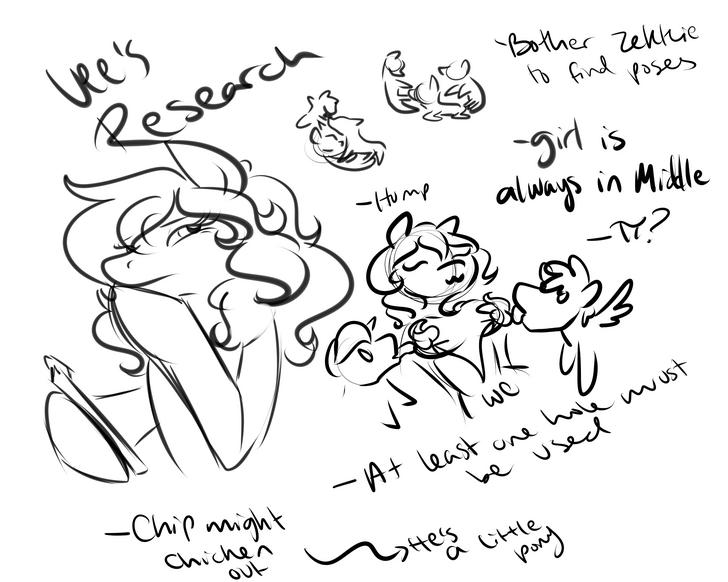 Vee's
Research
-Bother Zekkie
to find poses
-girl is
always in Middle
-Hump
-TY?
WC
-At least one hole must
be used
-Chip might
chicken
out
He's
a little
pony